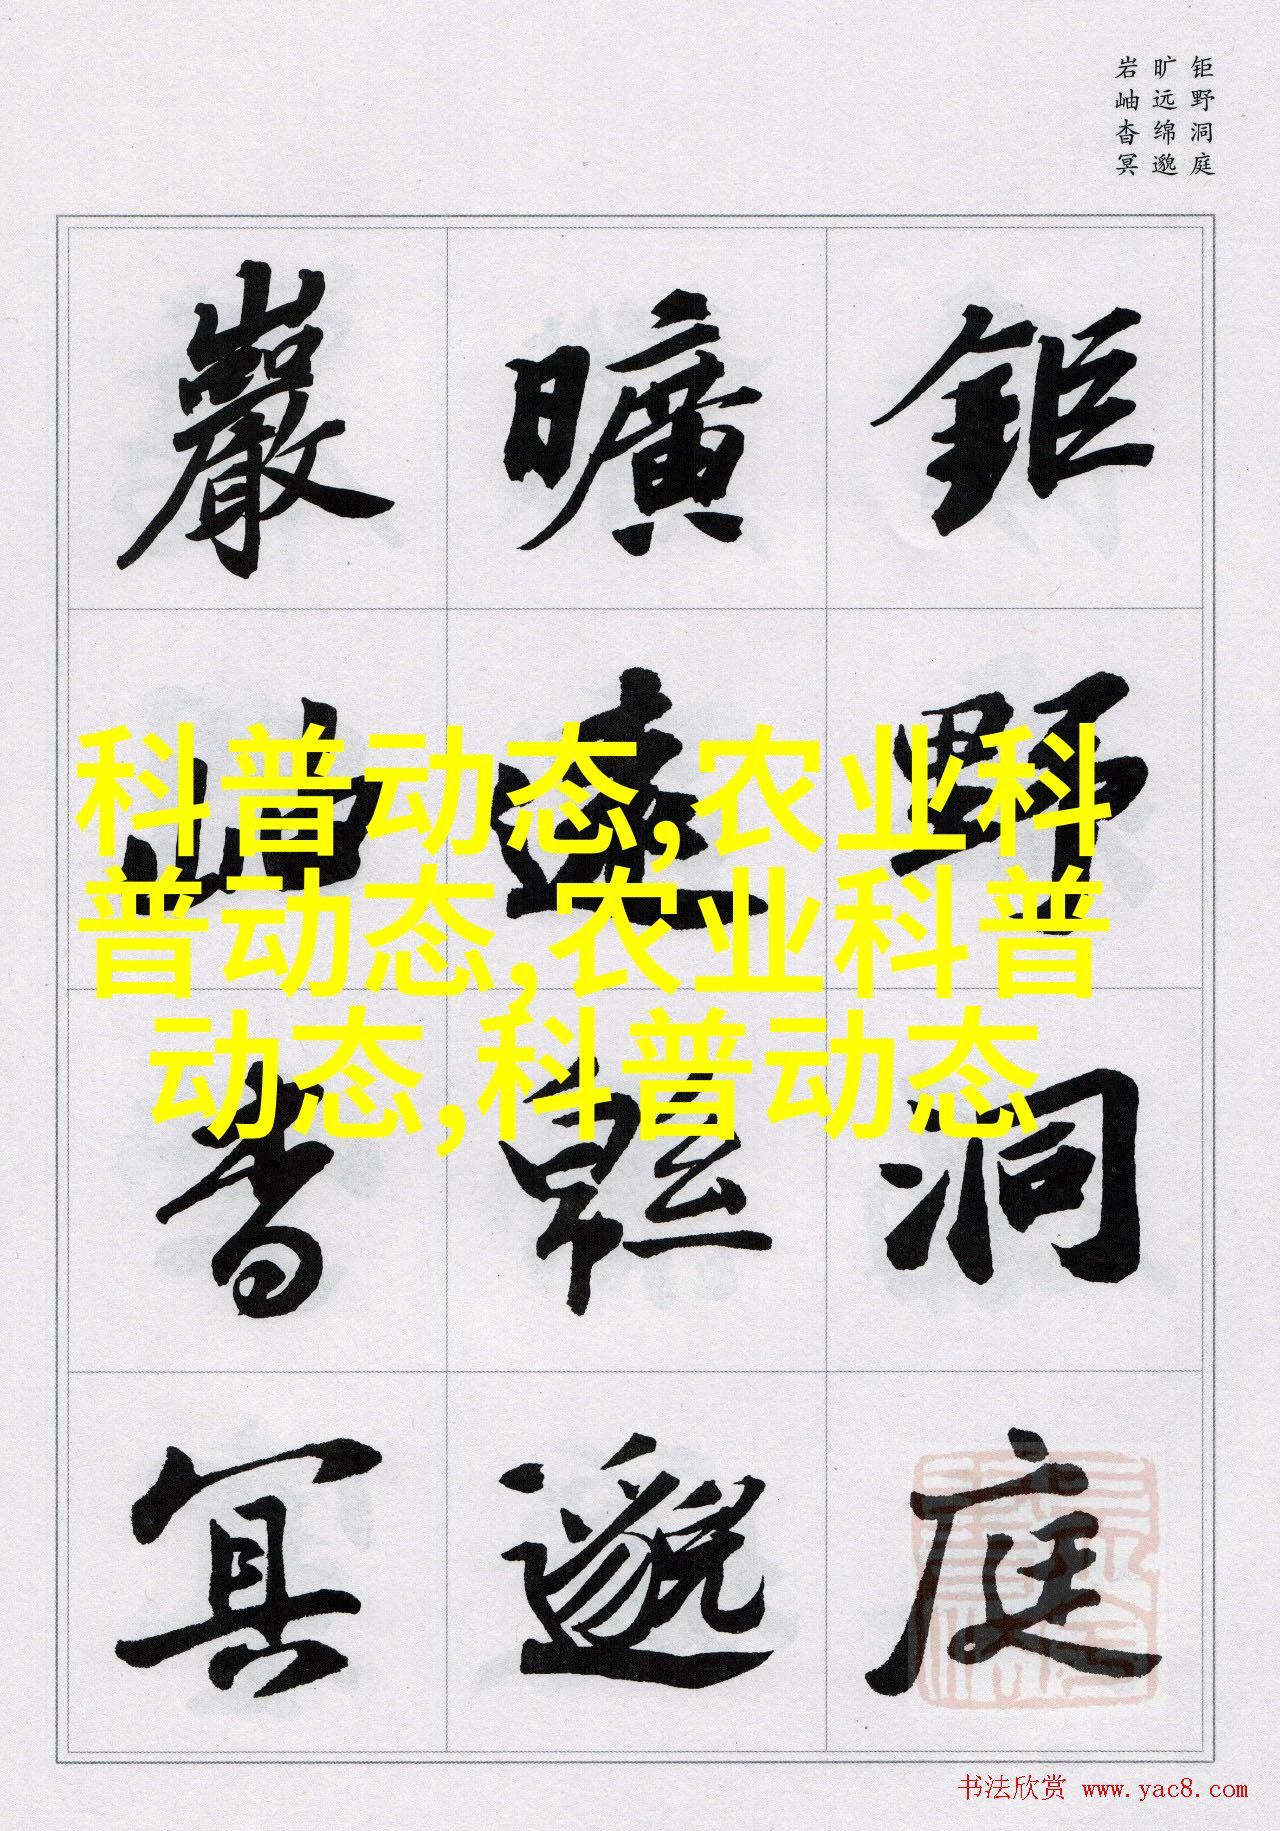 钜野洞庭
旷远绵邈
岩岫杳冥
鉅野洞庭
曠遠緜邈
巖岫杳冥
科普动态,农业科
普动态,农业科普
动态,科普动态
书法欣赏 www.yac8.com